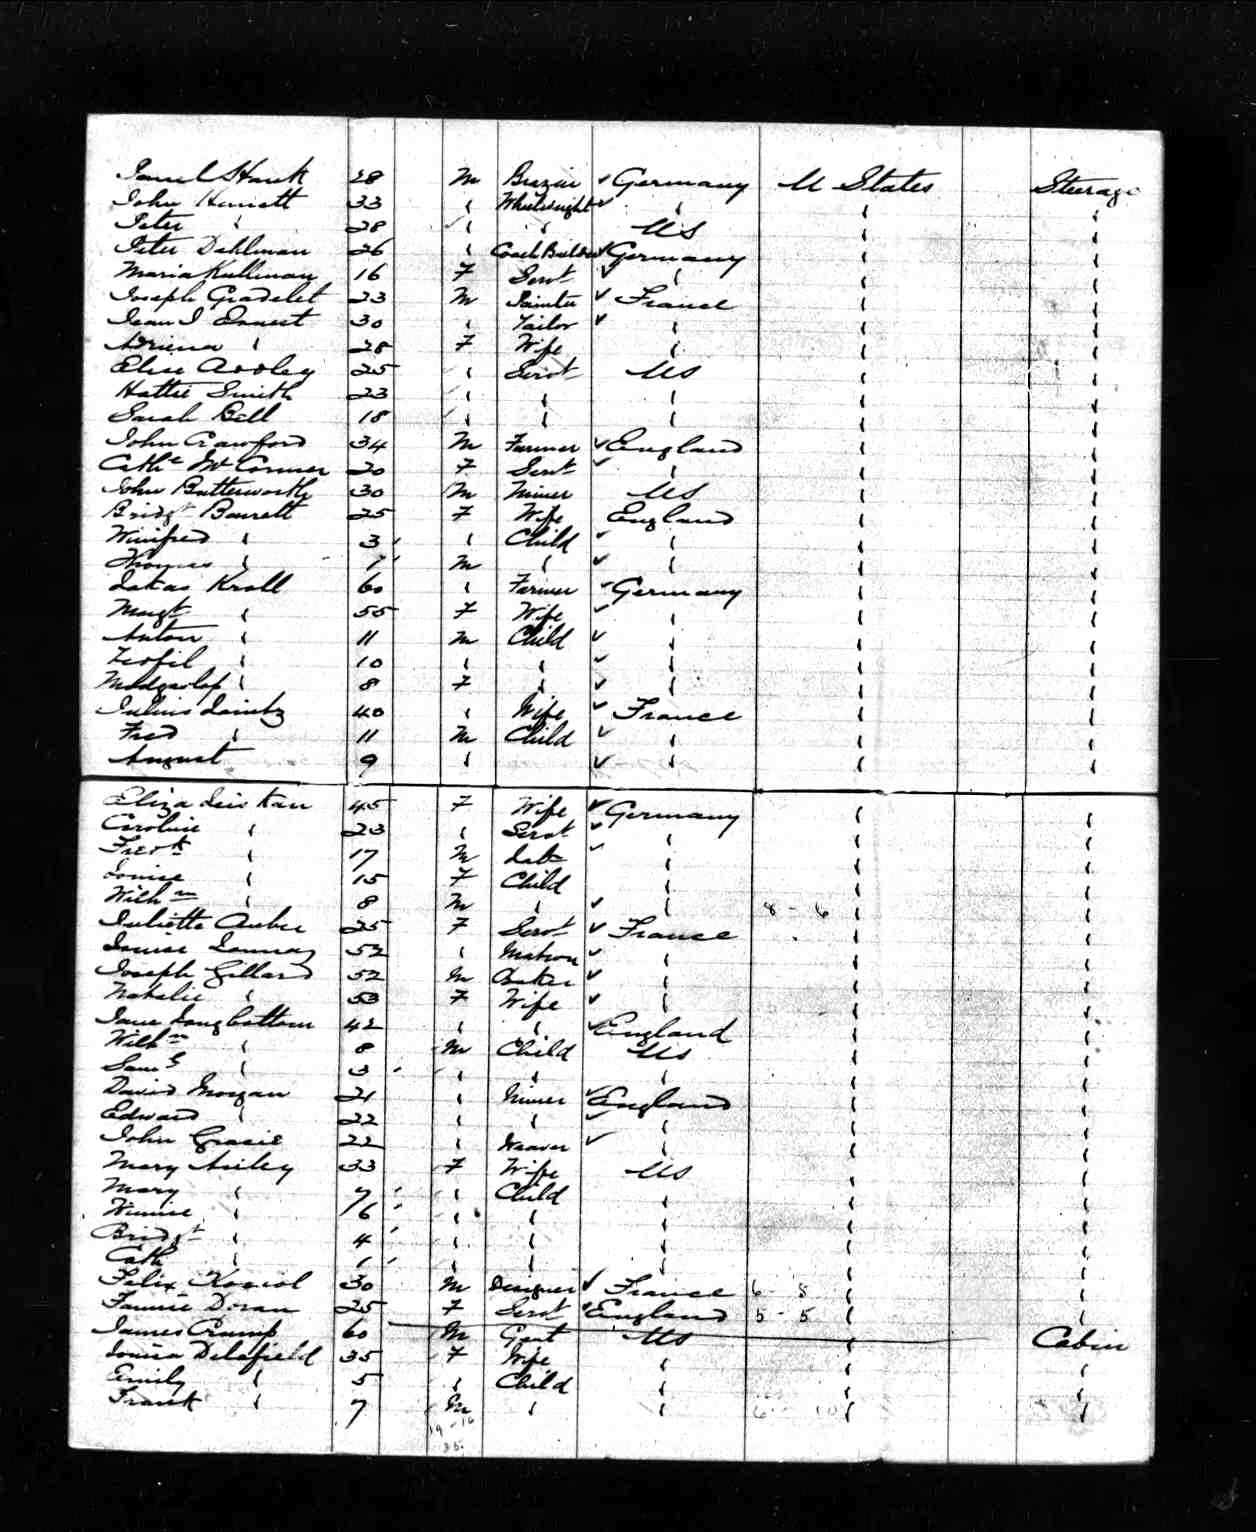 Saml Hauk 28 M Brazier ✓ Germany U States Steerage
John Hennett 33 " Wheelwright ✓ " " "
Peter " 28 " " US " "
Peter Dahlman 26 " Coach Builder ✓ Germany " "
Maria Kullman 16 F Servt ✓ " " "
Joseph Gradelet 23 M Painter ✓ France " "
Jean J Ernest 30 " Tailor ✓ " " "
Adriena " 28 F Wife " " "
Elise 25 " Servt US " "
Hattie Smith 23 " " " " "
Sarah Bell 18 " " " " "
John Crawford 34 M Farmer ✓ England " "
Cathe McConner 20 F Servt ✓ " " "
John Butterworth 30 M Miner US " "
Bridgt Barrett 25 F Wife England " "
Winifred " 3 " Child ✓ " " "
Thomas " 1 M " ✓ " " "
Lukas Kroll 60 " Farmer ✓ Germany " "
Margt " 55 F Wife ✓ " " "
Anton " 11 M Child ✓ " " "
Teofil " 10 " " ✓ " " "
" 8 F " ✓ " " "
Julius 40 " Wife ✓ France " "
Fred " 11 M Child ✓ " " "
August 9 " ✓ " " "
Eliza 45 F Wife ✓ Germany " "
Caroline " 23 " Servt ✓ " " "
Fredk " 17 M Lab ✓ " " "
Louise " 15 F Child " " "
Wilhm " 8 M " ✓ " 8 - 6 " "
Juliette Auber 25 F Servt ✓ France " "
Louise 52 " Matron ✓ " " "
Joseph Gillard 52 M Baker ✓ " " "
Natalie " 53 F Wife ✓ " " "
Jane Longbottom 42 " " ✓ England " "
Wilhm " 8 M Child US " "
Saml " 3 " " " " "
David Morgan 21 " Miner ✓ England " "
Edward " 22 " " ✓ " " "
John Gracie 22 " Weaver ✓ " " "
Mary 33 F Wife US " "
Mary " 7 " Child " " "
Winnie " 6 " " " " "
Bridgt " 4 " " " " "
Cath " 1 " " " " "
Felix 30 M Designer ✓ France 6 8 " "
Fannie Doran 25 F Servt ✓ England 5 - 5 " "
James Crump 60 M Gent US " Cabin
Louisa Delafield 35 F Wife " " "
Emily " 5 " Child " " "
Frank " 7 M " " 6 - 10 " "
19 - 16
35